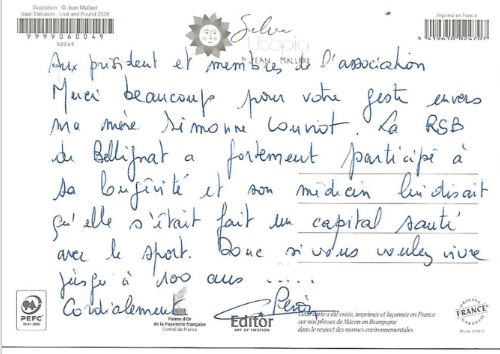 Illustration : © Jean Mallard
Isaac Delusion - Lost and Found 2024
9999060049
62245
Selva
Utopia
JEAN MALLARD
Imprimé en France
Aux président et membres de l'association
Merci beaucoup pour votre geste envers
ma mère Simonne Louviot. La RSB
de Bellignat a fortement participé à
sa longévité et son médecin lui disait
qu'elle s'était fait un capital santé
avec le sport. Donc si vous voulez vivre
jusqu'à 100 ans .....
Cordialement
PEFC
Palme d'Or
de la Papeterie française
Editor
ART OF EMOTION
Cette carte a été créée, imprimée et façonnée en France
sur nos presses de Mâcon en Bourgogne
dans le respect des normes environnementales.
FRANCE